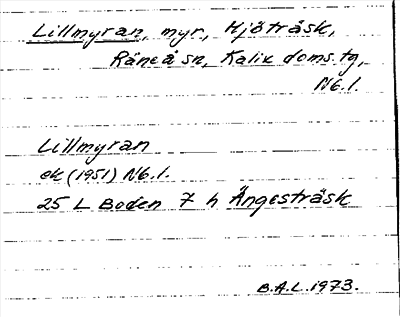 Lillmyran, myr., Mjöträsk,
Råneå sn, Kalix doms.tg,
Nb.l.
Lillmyran
ek (1951) Nb.l.
25 L Boden 7 h Ängesträsk
B.A.L. 1973.